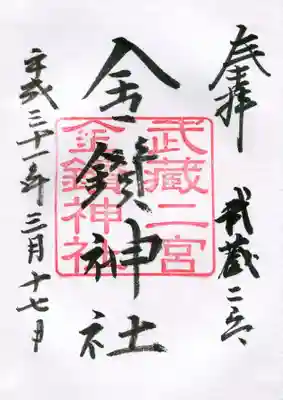 奉拝
武蔵二宮
金鑚神社
武藏二宮
金鑚神社
平成三十一年三月十七日